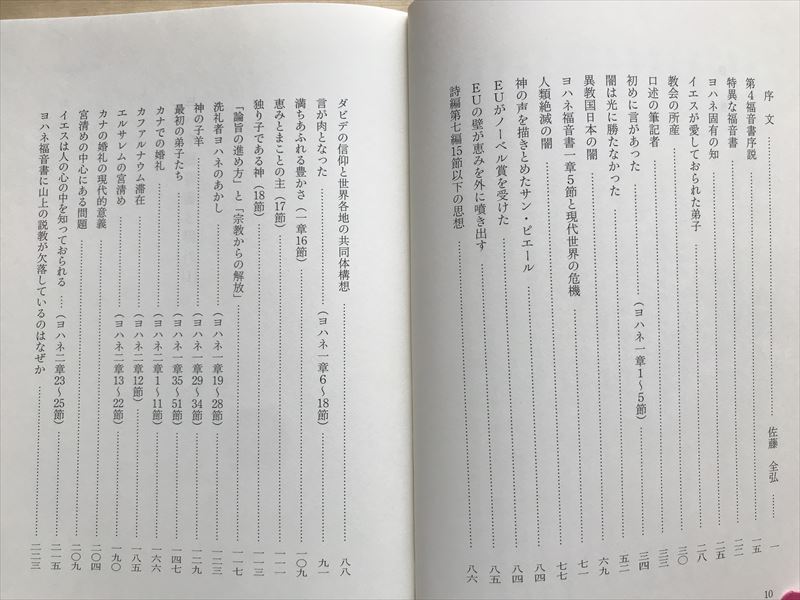 序文 …… 佐藤 全弘 …… 一
第4福音書序説 …… 一五
特異な福音書 …… 二二
ヨハネ固有の知 …… 二五
イエスが愛しておられた弟子 …… 二八
教会の所産 …… 三〇
口述の筆記者 …… 三三
初めに言があった …… (ヨハネ一章1～5節) …… 三四
闇は光に勝たなかった …… 五二
異教国日本の闇 …… 六九
ヨハネ福音書一章5節と現代世界の危機 …… 七一
人類絶滅の闇 …… 七七
神の声を描きとめたサン・ピエール …… 八四
EUがノーベル賞を受けた …… 八四
EUの壁が恵みを外に噴き出す …… 八五
詩編第七編15節以下の思想 …… 八六
10
ダビデの信仰と世界各地の共同体構想 …… 八八
言が肉となった …… (ヨハネ一章6～18節) …… 九一
満ちあふれる豊かさ(一章16節) …… 一〇九
恵みとまことの主(17節) …… 一一一
独り子である神(18節) …… 一一三
「論旨の進め方」と「宗教からの解放」 …… 一一七
洗礼者ヨハネのあかし …… (ヨハネ一章19～28節) …… 一二三
神の子羊 …… (ヨハネ一章29～34節) …… 一二九
最初の弟子たち …… (ヨハネ一章35～51節) …… 一四七
カナでの婚礼 …… (ヨハネ二章1～11節) …… 一六六
カファルナウム滞在 …… (ヨハネ二章12節) …… 一八五
エルサレムの宮清め …… (ヨハネ二章13～22節) …… 一九〇
カナの婚礼の現代的意義 …… 二〇四
宮清めの中心にある問題 …… 二〇九
イエスは人の心の中を知っておられる …… (ヨハネ二章23～25節) …… 二一五
ヨハネ福音書に山上の説教が欠落しているのはなぜか …… 二二三